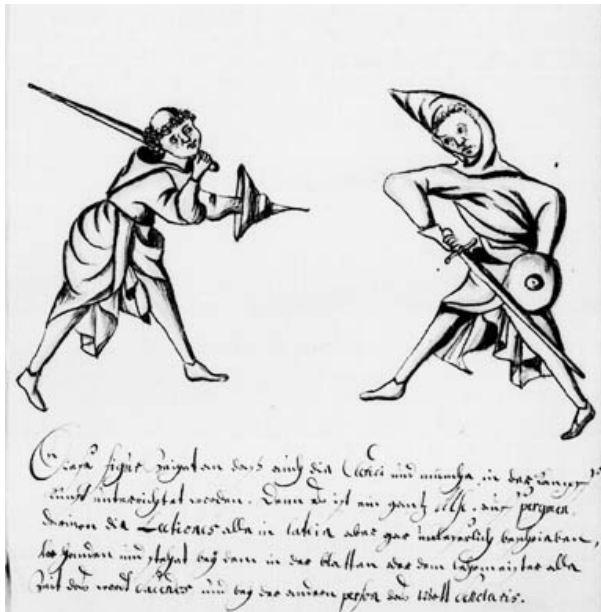 figur Zaiget an dass auch die Clerici und münche, in der kampf
kunst unterrichtet worden. Denn da ist ein gantz auf Pergam
darinen die Lectiones alle in latein aber gar unleserlich beschrieben,
vorhanden und stehet bey dem in der blatten oder dem lehrmeister alle
Zeit das wort und bey der andern person das wort